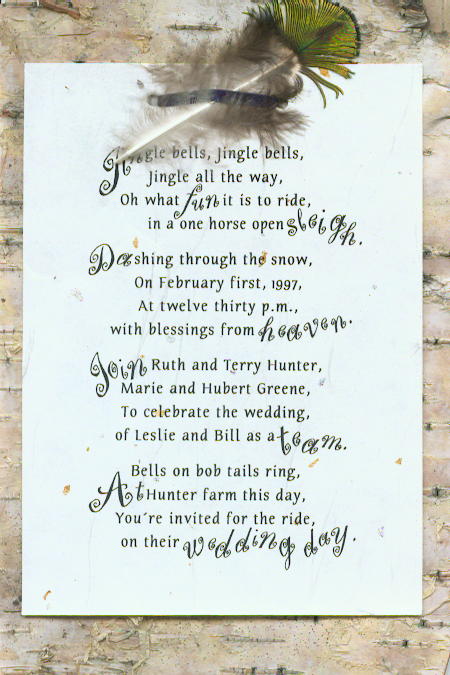 Jingle bells, Jingle bells,
Jingle all the way,
Oh what fun it is to ride,
in a one horse open sleigh.
Dashing through the snow,
On February first, 1997,
At twelve thirty p.m.,
with blessings from heaven.
Join Ruth and Terry Hunter,
Marie and Hubert Greene,
To celebrate the wedding,
of Leslie and Bill as a team.
Bells on bob tails ring,
At Hunter farm this day,
You´re invited for the ride,
on their wedding day.